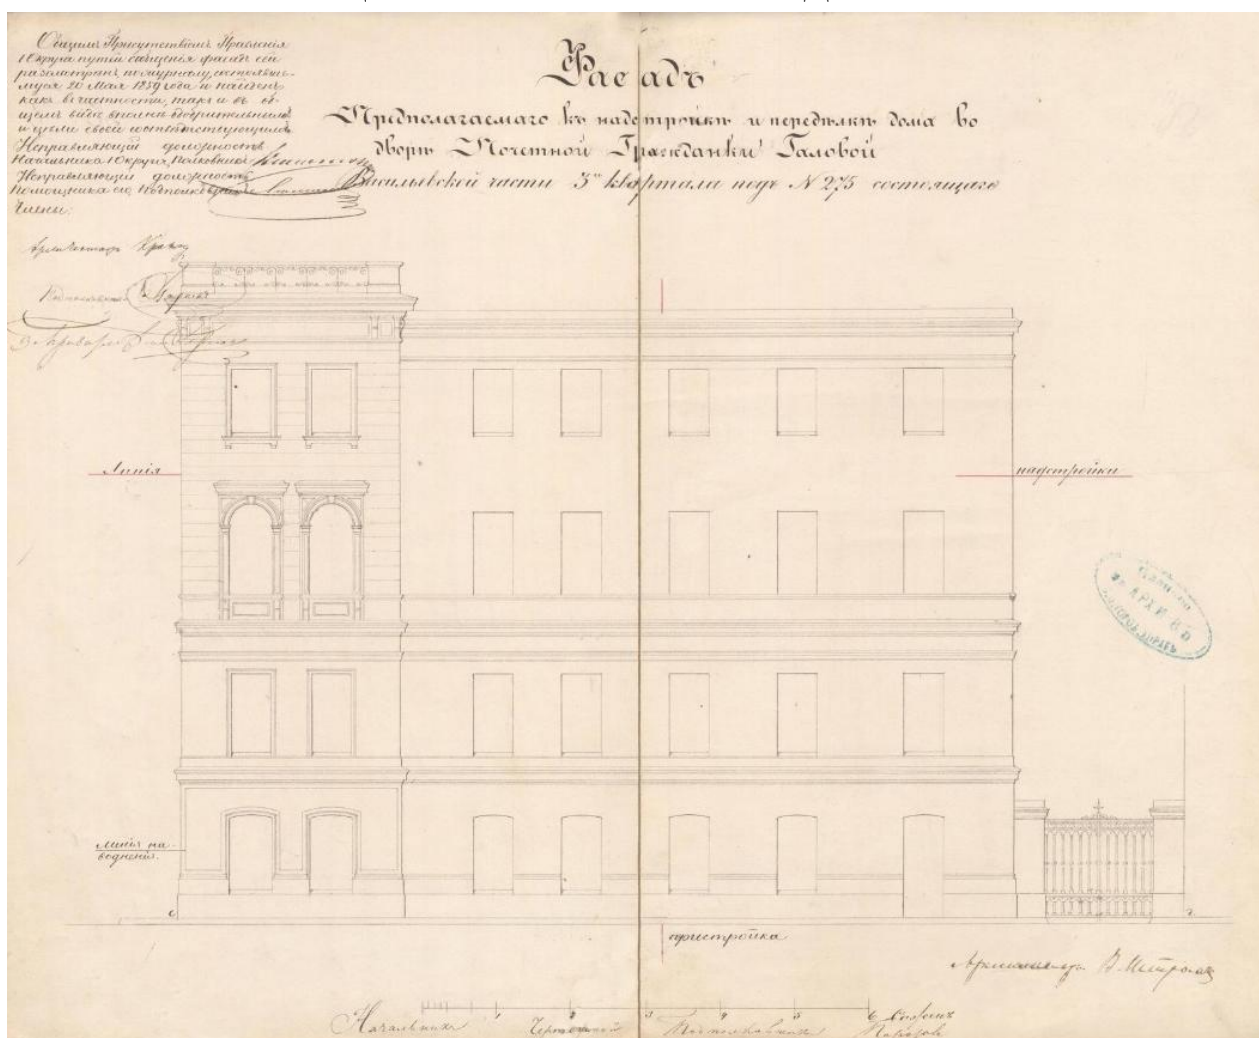 Общимъ Присутствіемъ Правленія
I Округа путей сообщенія фасадъ сей
разсмотренъ, по журналу, состоявше-
муся 20 Мая 1859 года и найденъ
какъ въ частности, такъ и въ об-
щемъ видѣ вполнѣ одобрительнымъ
и цѣли своей соотвѣтствующимъ
Исправляющій должность
Начальника I Округа, Полковникъ
Исправляющій должность
Помощника его Подполковникъ
Члены:
Архитекторъ
Фасадъ
Предполагаемаго къ надстройкѣ и передѣлкѣ дома во
дворѣ Почетной Гражданки Галовой
Васильевской части 3го квартала подъ N 275 состоящаго
Линія
надстройки
АРХИВЪ
линія на-
водненія.
пристройка
Архитекторъ
1 2 3 4 5 6 Сажень
Начальникъ Чертежной